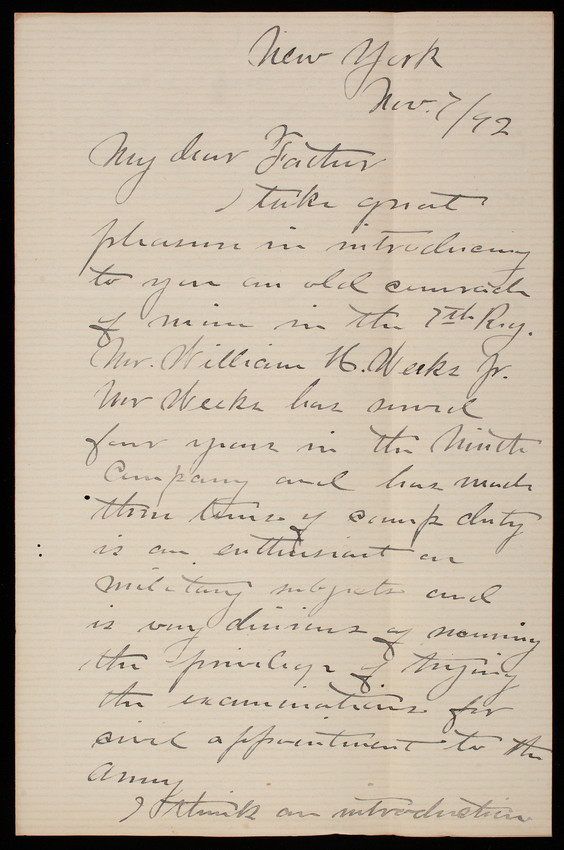 New York
Nov. 7/92
My dear Father
I take great
pleasure in introducing
to you an old comrade
of mine in the 7th Reg.
Mr. William H. Weeks Jr.
Mr Weeks has served
four years in the Ninth
Company and has made
three terms of camp duty
is an enthusiast on
military subjects and
is very desirous of securing
the privilege of trying
the examinations for
civil appointment to the
Army
I think an introduction